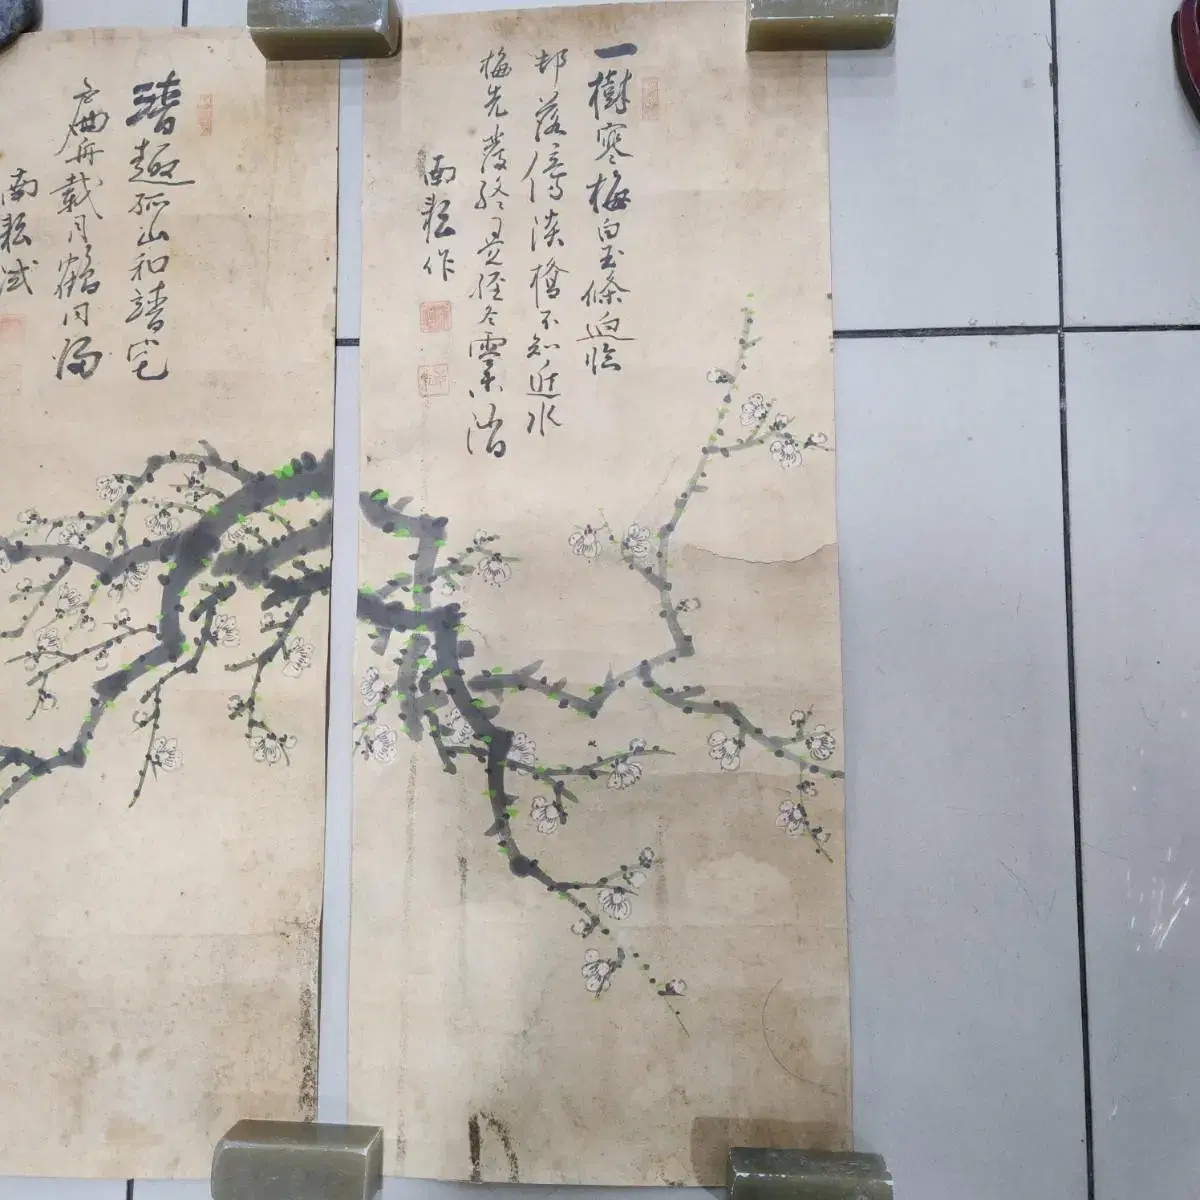 一樹寒梅白玉條迥臨
邨落傍溪橋不知近水
梅先發終是經冬雪未消
南耘作
清趣孤山和靖宅
扁舟載月鶴同歸
南耘試